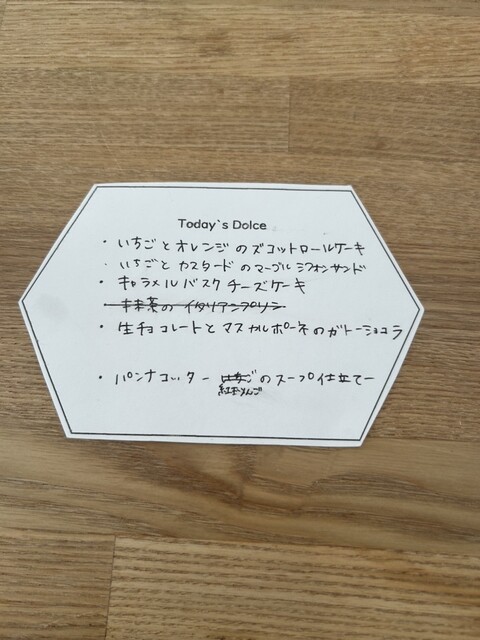 Today`s Dolce
・いちごとオレンジのズコットロールケーキ
・いちごとカスタードのマーブルシフォンサンド
・キャラメルバスクチーズケーキ
・抹茶のイタリアンプリン
・生チョコレートとマスカルポーネのガトーショコラ
・パンナコッター いちごのスープ仕立てー
紅玉りんご